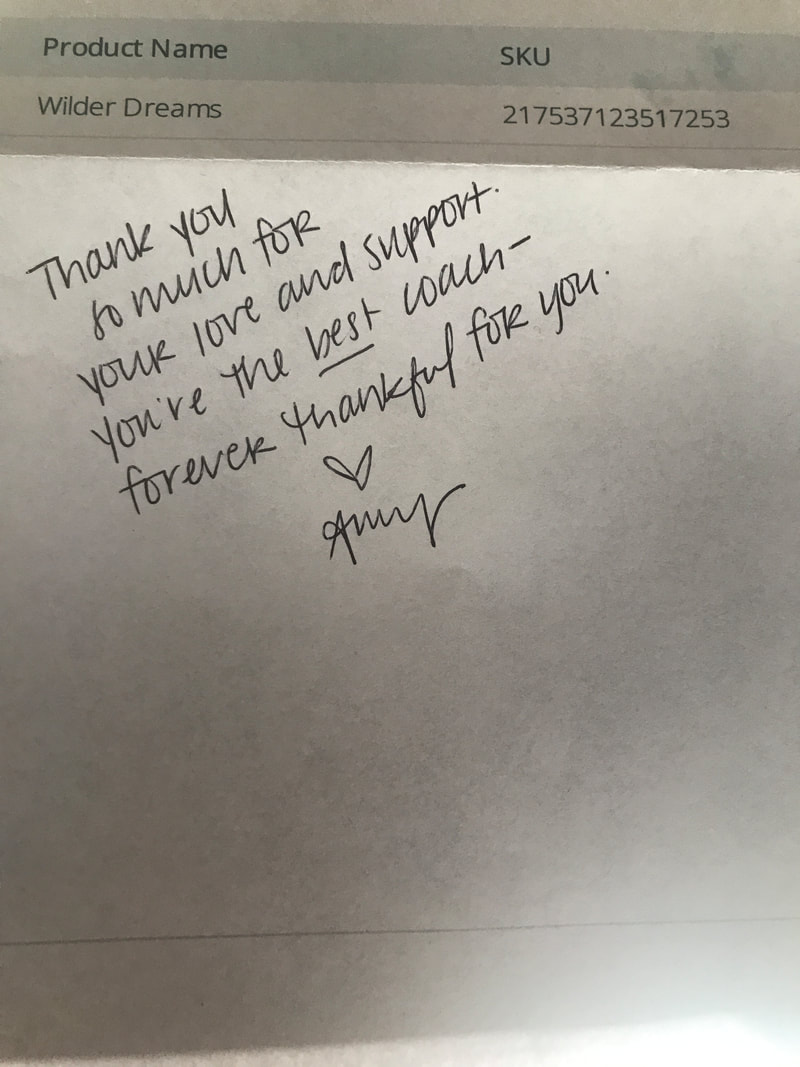 Product Name SKU
Wilder Dreams 217537123517253
Thank you
so much for
your love and support.
You're the best coach-
forever thankful for you.
♡
Amy